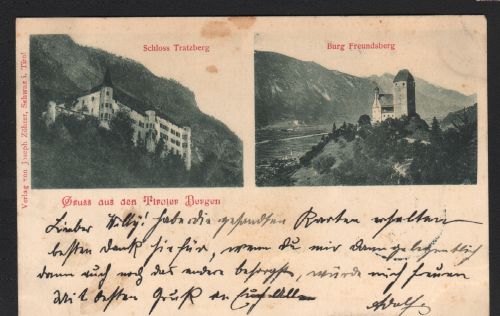 Schloss Tratzberg
Burg Freundsberg
Verlag von Joseph Zöhrer, Schwaz i. Tirol
Gruss aus den Tiroler Bergen
Lieber Willy! habe die gesandten Karten erhalten
besten Dank hiefür, wenn du mir dann gelegentlich
dann auch noch das andere besorgst, würde mich freuen
Mit besten Gruß an Euch Alle
Adolf